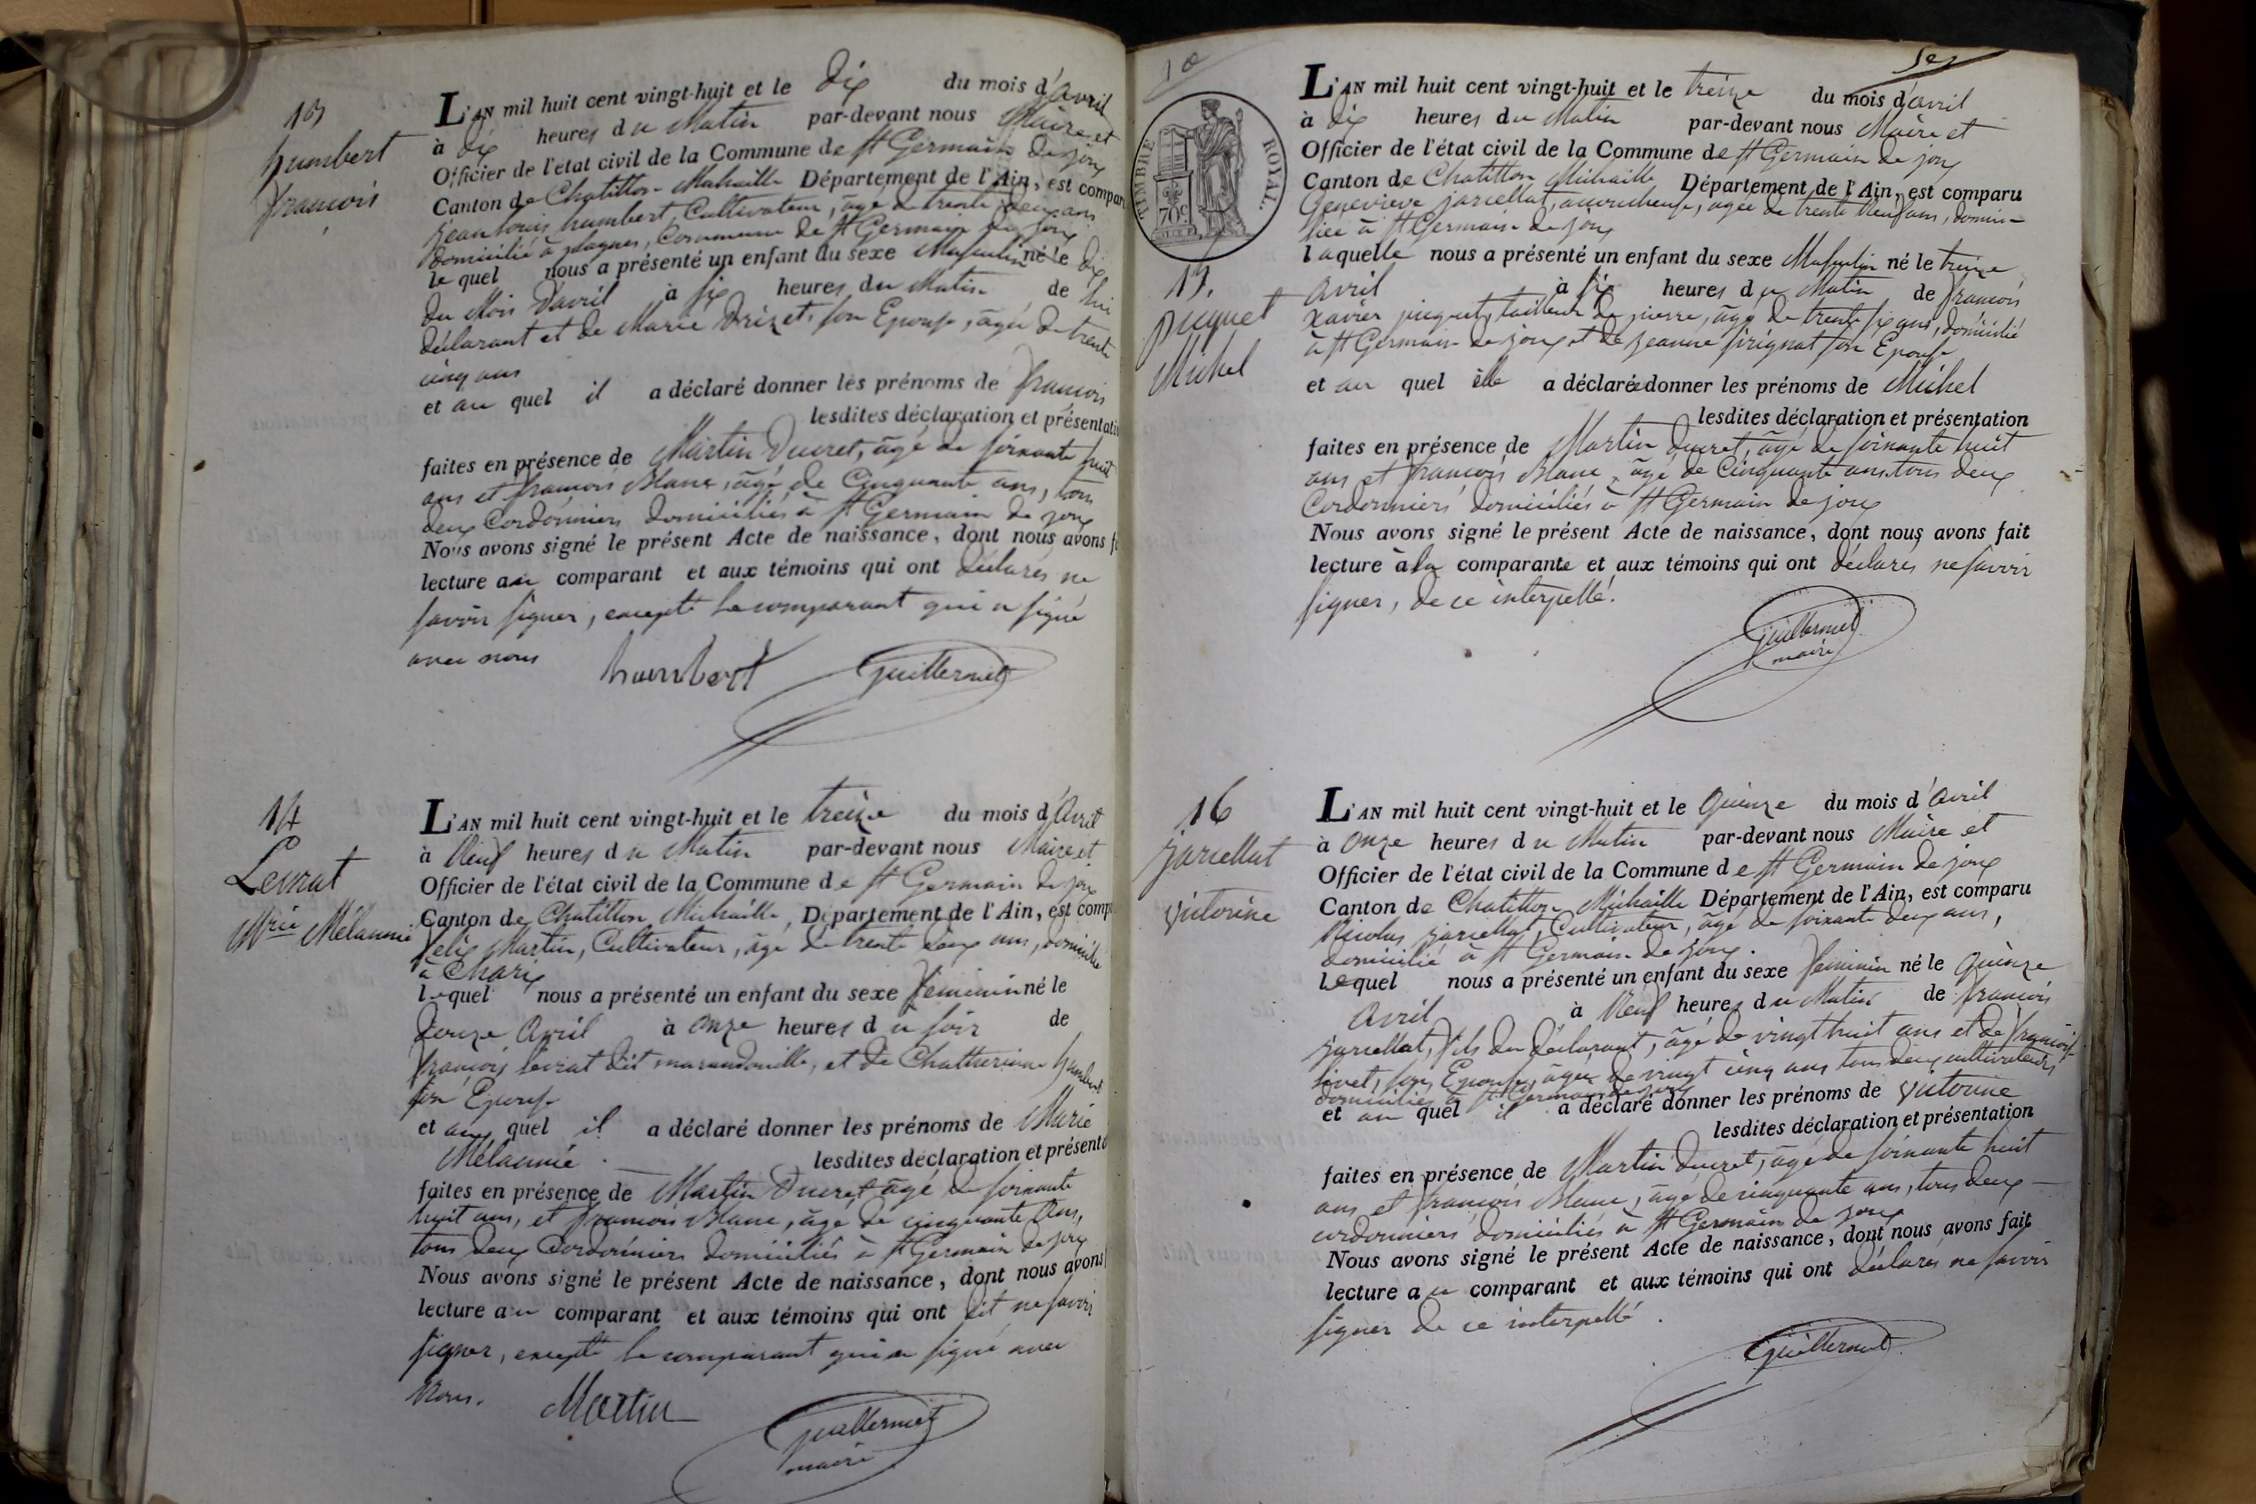 13
humbert
françois
L'AN mil huit cent vingt-huit et le dix du mois d'avril
à dix heures du Matin par-devant nous Maire et
Officier de l'état civil de la Commune de St Germain de joux
Canton de Chatillon Michaille Département de l'Ain, est compar
jean louis humbert, Cultivateur, âgé de trente deux ans
domicilié à plagnes, Commune de St Germain de joux
le quel nous a présenté un enfant du sexe Masculin né le dix
du Mois d'avril à six heures du Matin de lui
déclarant et de Marie Brizet, son Epouse, âgée de trente
cinq ans
et au quel il a déclaré donner les prénoms de françois
lesdites déclaration et présentati
faites en présence de Martin Ducret, âgé de soixante huit
ans et françois Blanc, âgé de Cinquante ans, tous
deux Cordonniers domiciliés à St Germain de joux
Nous avons signé le présent Acte de naissance, dont nous avons f
lecture au comparant et aux témoins qui ont déclarés ne
savoir signer, excepté le comparant qui a signé
avec nous
humbert Guillermet
14
Levrat
Mrie Mélannie
L'AN mil huit cent vingt-huit et le treize du mois d'Avril
à Neuf heures du Matin par-devant nous Maire et
Officier de l'état civil de la Commune de St Germain de joux
Canton de Chatillon Michaille Département de l'Ain, est comp
felix Martin, Cultivateur, âgé de trente deux ans, domicilié
à Charix
lequel nous a présenté un enfant du sexe féminin né le
douze Avril à onze heures du soir de
françois levrat dit marandouille, et de Chatherine humbert
son Epouse
et au quel il a déclaré donner les prénoms de Marie
Mélannie. lesdites déclaration et présenta
faites en présence de Martin Ducret âgé de soixante
huit ans, et françois Blanc, âgé de cinquante Ans,
tous deux Cordonniers domiciliés à St Germain de joux
Nous avons signé le présent Acte de naissance, dont nous avons
lecture au comparant et aux témoins qui ont dit ne savoir
signer, excepté le comparant qui a signé avec
Nous. Martin Guillermet
maire
10
TIMBRE ROYAL.
70c
15.
picquet
Michel
L'AN mil huit cent vingt-huit et le treize du mois d'avril
à dix heures du Matin par-devant nous Maire et
Officier de l'état civil de la Commune de St Germain de joux
Canton de Chatillon Michaille Département de l'Ain, est comparu
Geneviève jarcellat, accoucheuse, âgée de trente Neuf ans, domici-
liée à St Germain de joux
laquelle nous a présenté un enfant du sexe Masculin né le treize
avril à six heures du Matin de françois
xavier picquet, tailleur de pierre, âgé de trente six ans, domicilié
à St Germain de joux et de jeanne pérignat son Epouse
et au quel elle a déclarée donner les prénoms de Michel
lesdites déclaration et présentation
faites en présence de Martin Ducret, âgé de soixante huit
ans et françois Blanc, âgé de Cinquante ans tous deux
Cordonniers domiciliés à St Germain de joux
Nous avons signé le présent Acte de naissance, dont nous avons fait
lecture à la comparante et aux témoins qui ont déclarés ne savoir
signer, de ce interpellé.
Guillermet
maire
16
jarcellat
victorine
L'AN mil huit cent vingt-huit et le Quinze du mois d'avril
à onze heures du Matin par-devant nous Maire et
Officier de l'état civil de la Commune de St Germain de joux
Canton de Chatillon Michaille Département de l'Ain, est comparu
Nicolas jarcellat, Cultivateur, âgé de soixante deux ans,
domicilié à St Germain de joux.
Lequel nous a présenté un enfant du sexe féminin né le Quinze
avril à Neuf heures du Matin de françois
jarcellat, fils du déclarant, âgé de vingt huit ans et de françoise
livet, son Epouse, âgée de vingt cinq ans tous deux cultivateurs
domiciliés à St Germain de joux
et au quel il a déclaré donner les prénoms de victorine
lesdites déclaration et présentation
faites en présence de Martin Ducret, âgé de soixante huit
ans et françois Blanc, âgé de cinquante ans, tous deux
cordonniers domiciliés à St Germain de joux
Nous avons signé le présent Acte de naissance, dont nous avons fait
lecture au comparant et aux témoins qui ont déclarés ne savoir
signer de ce interpellé.
Guillermet